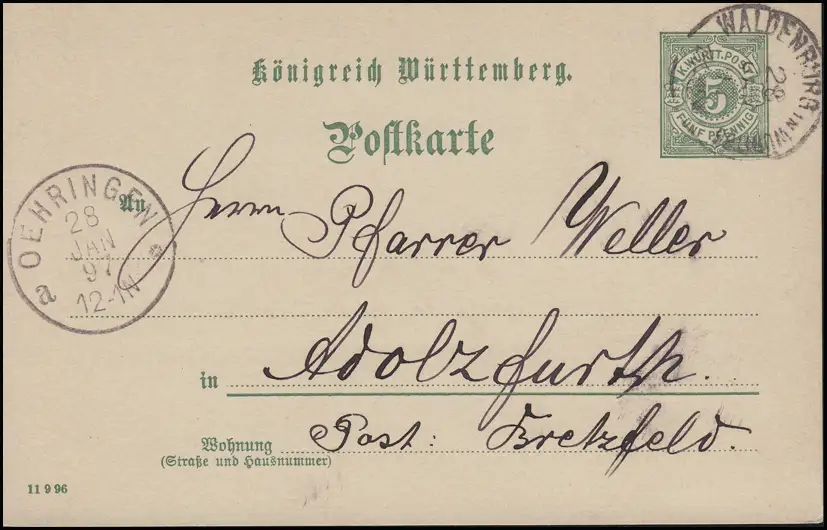 Königreich Württemberg.
K. WÜRTT. POST
5
FÜNF PFENNIG
WALDENBURG
28
Postkarte
OEHRINGEN
28
JAN
97
12-1N
a
An Herrn Pfarrer Weller
in Adolzfurth.
Post: Bretzfeld.
Wohnung
(Straße und Hausnummer)
11 9 96